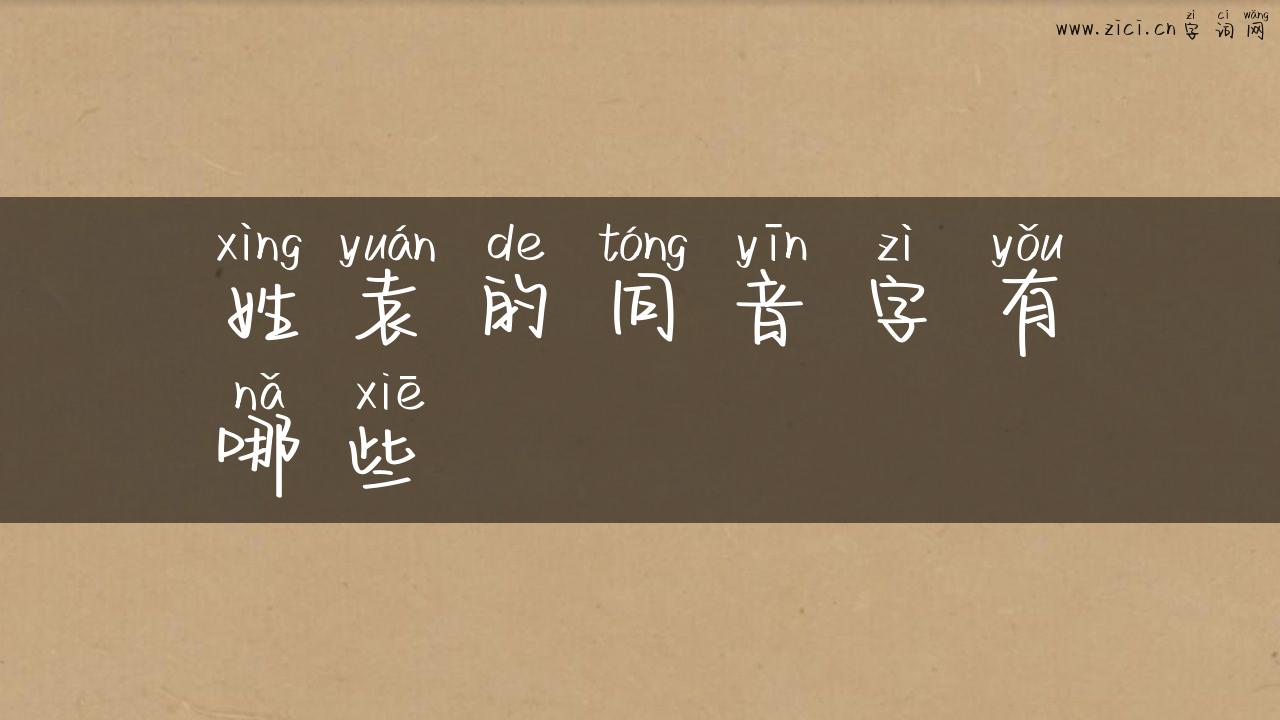 zì cí wǎng
www.zici.cn 字 词 网
xìng yuán de tóng yīn zì yǒu
姓 袁 的 同 音 字 有
nǎ xiē
哪 些